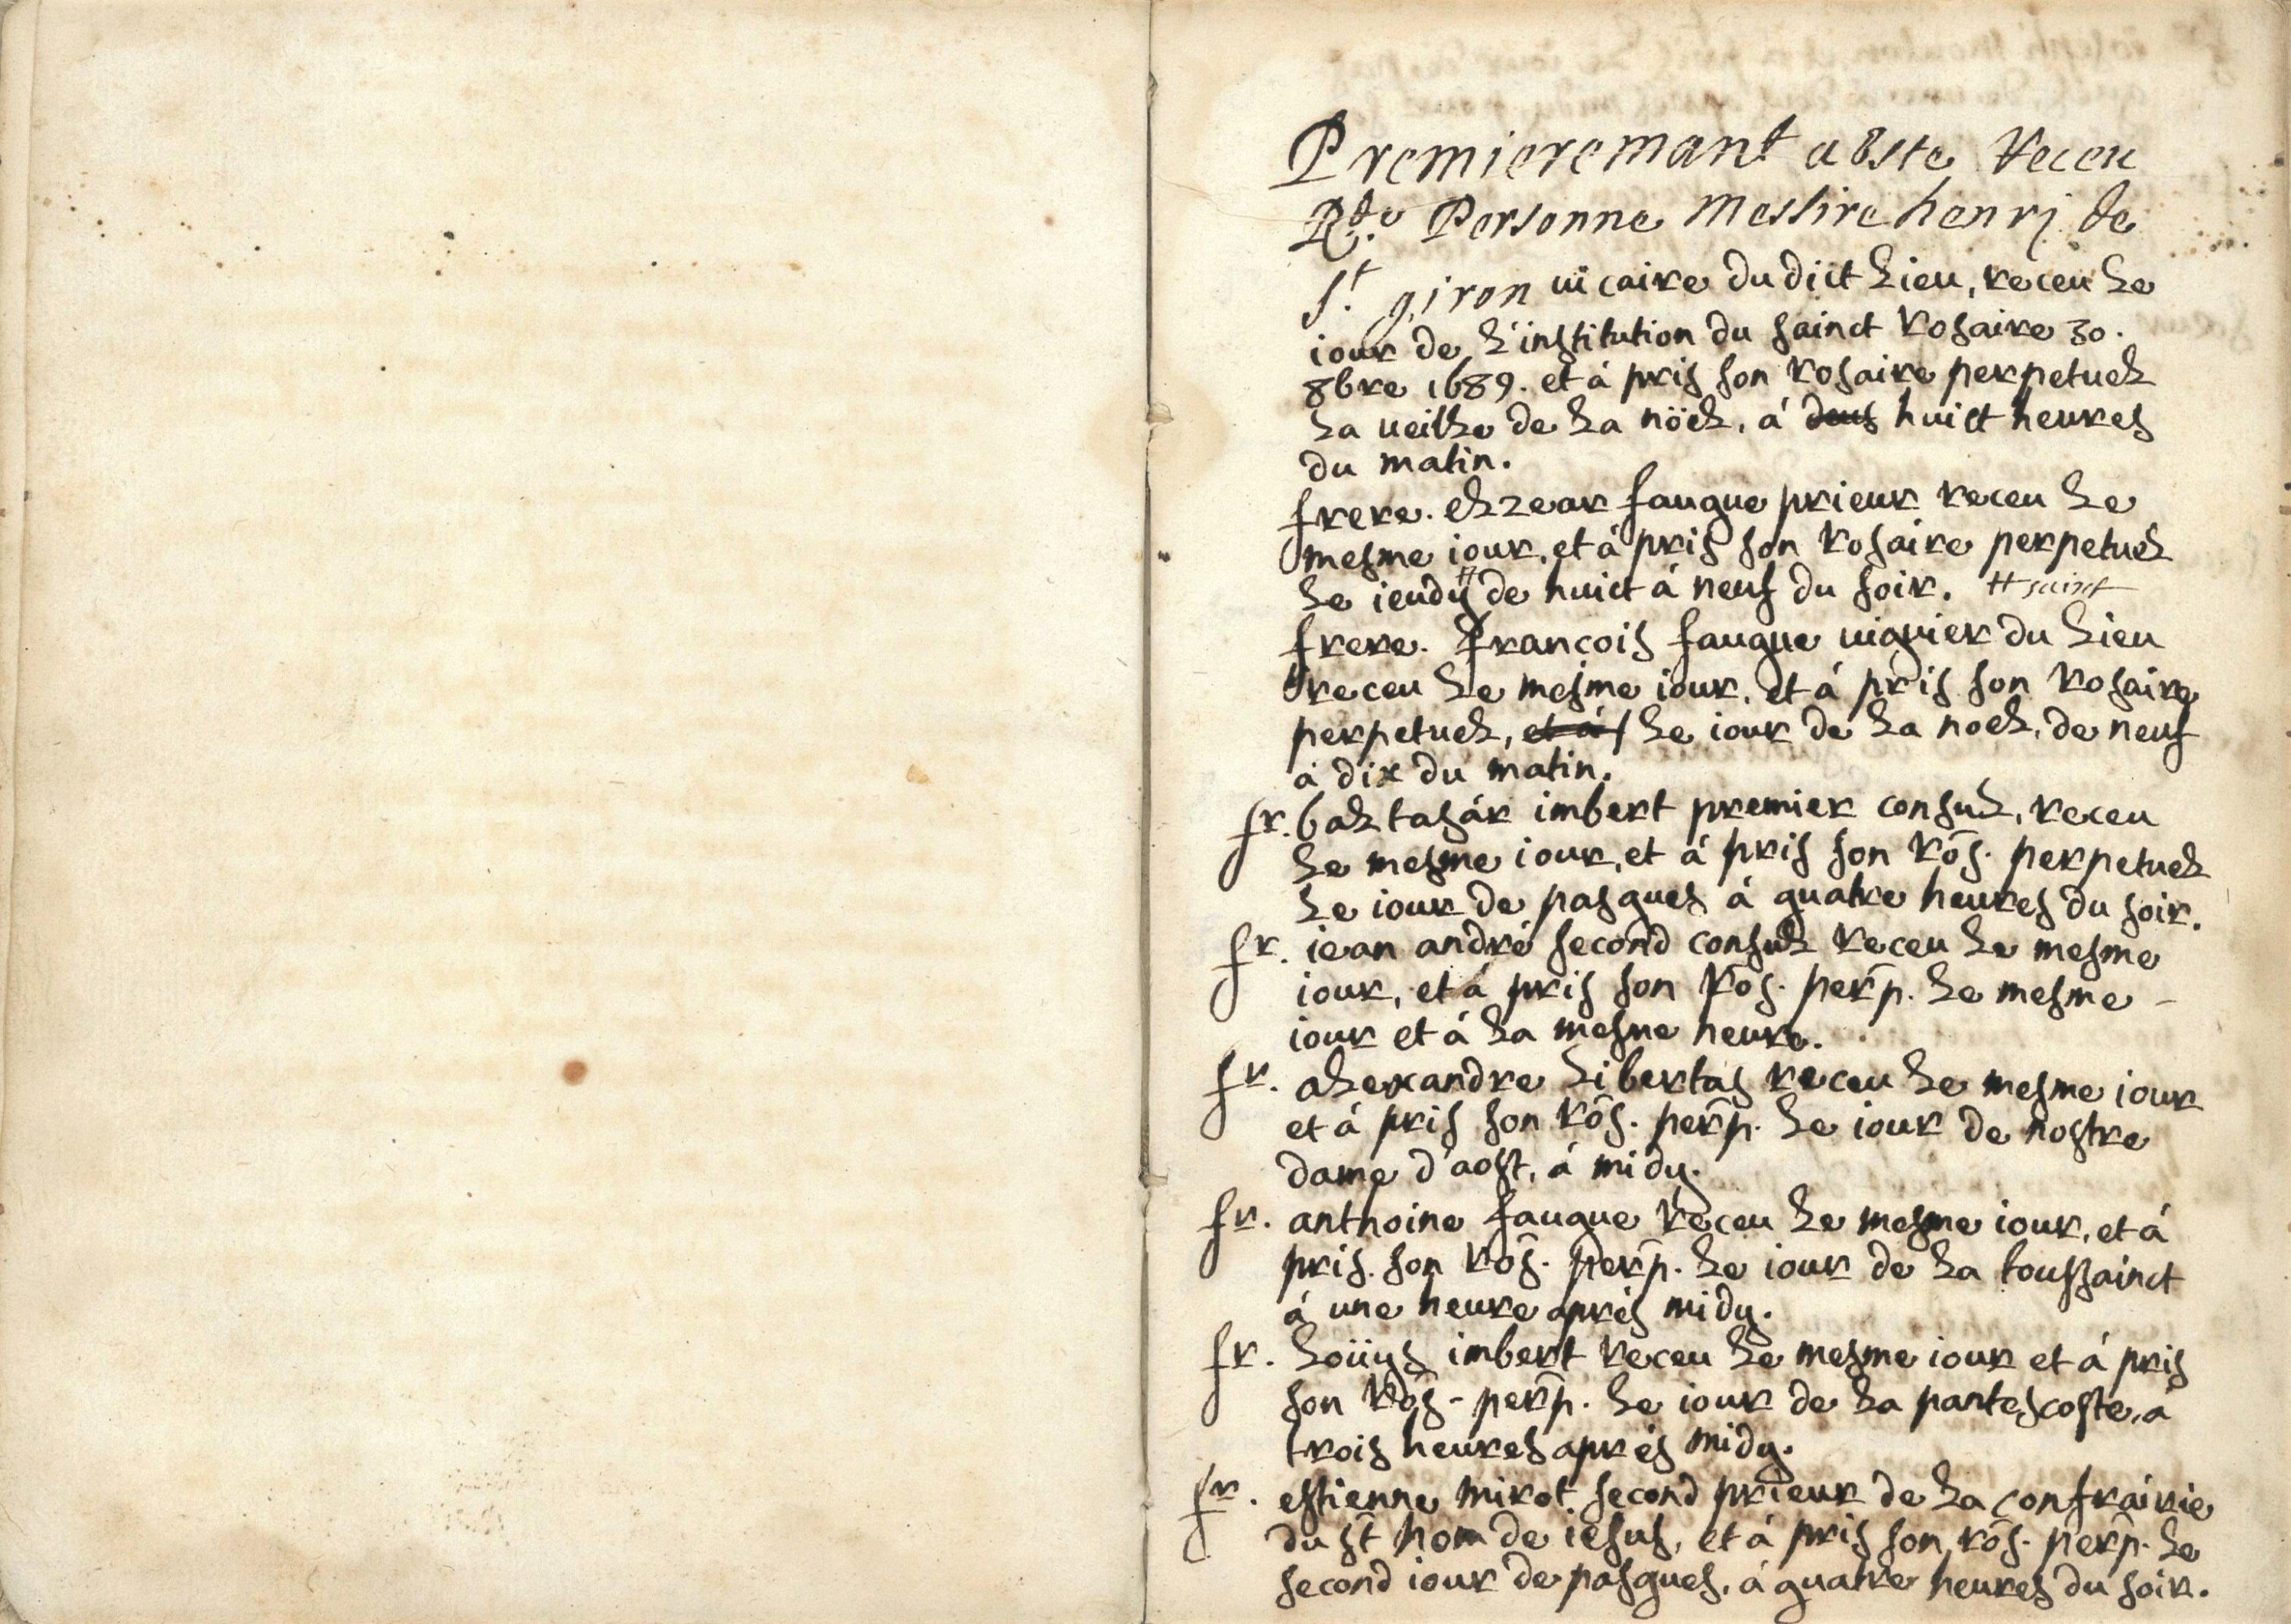 Premieremant a este receu
R.de Personne Messire henrj de
St. giron uicaire du dict lieu, receu le
iour de l'institution du sainct rosaire 30.
8bre 1689. et á pris son rosaire perpetuel
la ueille de la nöel, á deus huict heures
du matin.
frere. elzear faugue prieur receu le
mesme iour, et á pris son rosaire perpetuel
le ieudy # de huict á neuf du soir. # saint
frere. francois faugue uiguier du lieu
receu le mesme iour, et á pris son rosaire
perpetuel, et á le iour de la noel, de neuf
á dix du matin.
fr. baltasár imbert premier consul, receu
le mesme iour, et á pris son rõs. perpetuel
le iour de pasques á quatre heures du soir.
fr. iean andré second consul receu le mesme
iour, et á pris son rõs. perp̃. le mesme -
iour et á la mesme heure.
fr. alexandre libertas receu le mesme iour
et á pris son rõs. perp̃. le iour de nostre
dame d'aost, á midy.
fr. anthoine faugue receu le mesme iour, et á
pris. son rõs. perp̃. le iour de la toussainct
á une heure aprés midy.
fr. loüys imbert receu le mesme iour et á pris
son rõs - perp̃. le iour de la pantescoste, á
trois heures aprés midy.
fr. estienne mirot second prieur de la confrairie
du st̃ nom de iesus, et á pris son rõs. perp̃. le
second iour de pasques, á quatre heures du soir.